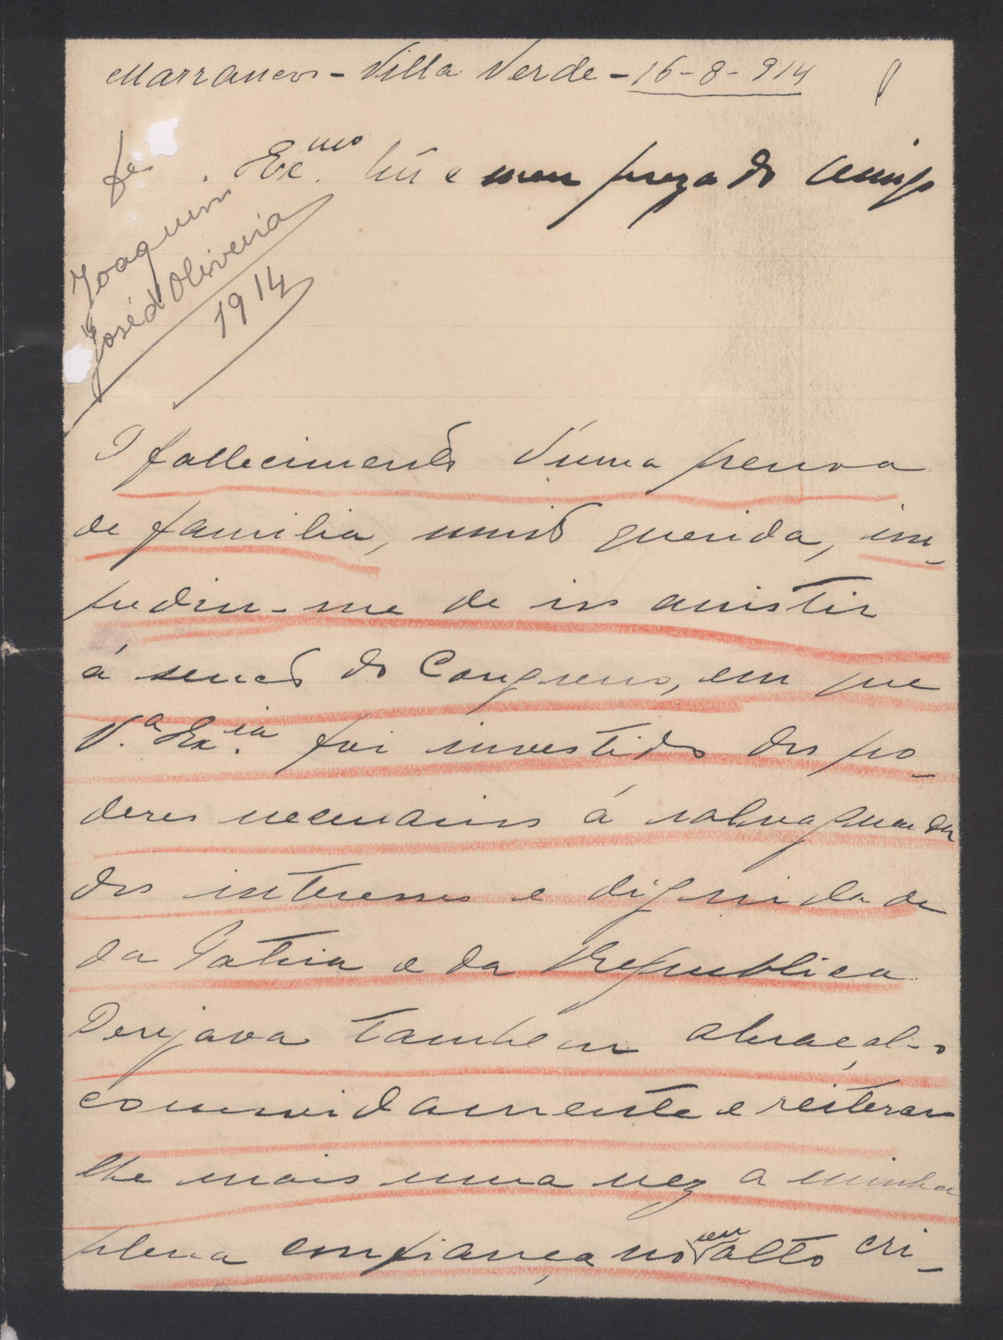 Marrancos - Villa Verde - 16-8-914
Ex.mo Sñr e meu prezado Amigo
Joaquim
José d'Oliveira
1914
O fallecimento d'uma pessoa
de familia, muito querida, im-
pediu-me de ir assistir
á sessão do Congresso, em que
V.ª Ex.ia foi investido dos po-
deres necessarios á salvaguarda
dos interesses e dignidade
da Patria e da Republica.
Desejava tambem abraçal-o
commovidamente e reiterar-
lhe mais uma vez a minha
plena confiança no seu alto cri-